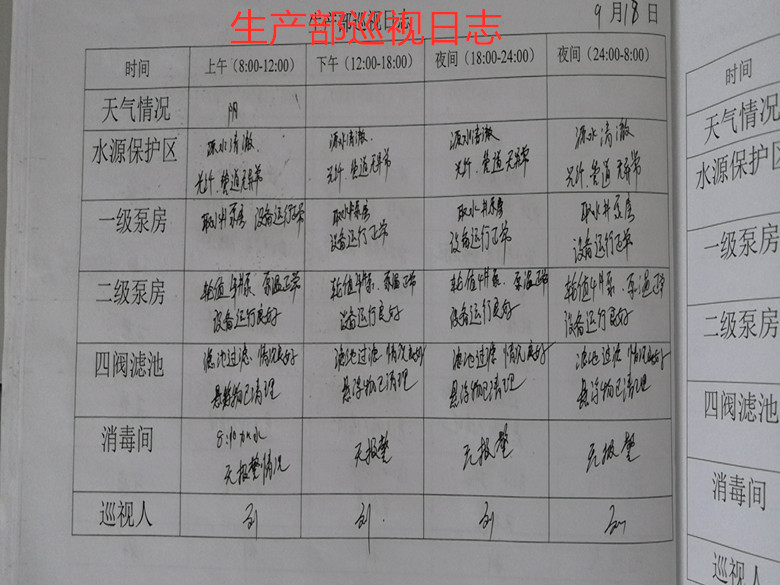 生产部巡视日志
生产部巡视日志
9月18日
时间 上午(8:00-12:00) 下午(12:00-18:00) 夜间(18:00-24:00) 夜间(24:00-8:00)
天气情况 阴
水源保护区 源水清澈、 源水清澈 源水清澈 源水清澈
光纤.管道无异常 光纤.管道无异常 光纤.管道无异常 光纤.管道无异常
一级泵房 取水井泵房 设备运行正常 取水井泵房 取水井泵房 取水井泵房
设备运行正常 设备运行正常 设备运行正常
二级泵房 轮值4#泵、泵温正常 轮值4#泵、泵温正常 轮值4#泵、泵温正常
设备运行良好 设备运行良好 设备运行良好 设备运行良好
四阀滤池 滤池过滤情况良好 滤池过滤情况良好 滤池过滤情况良好 滤池过滤情况良好
悬浮物已清理 悬浮物已清理 悬浮物已清理 悬浮物已清理
消毒间 8:10加水
无报警情况 无报警 无报警 无报警
巡视人 刘 刘 刘 刘
时间
天气情况
水源保护区
一级泵房
二级泵房
四阀滤池
消毒间
巡视人